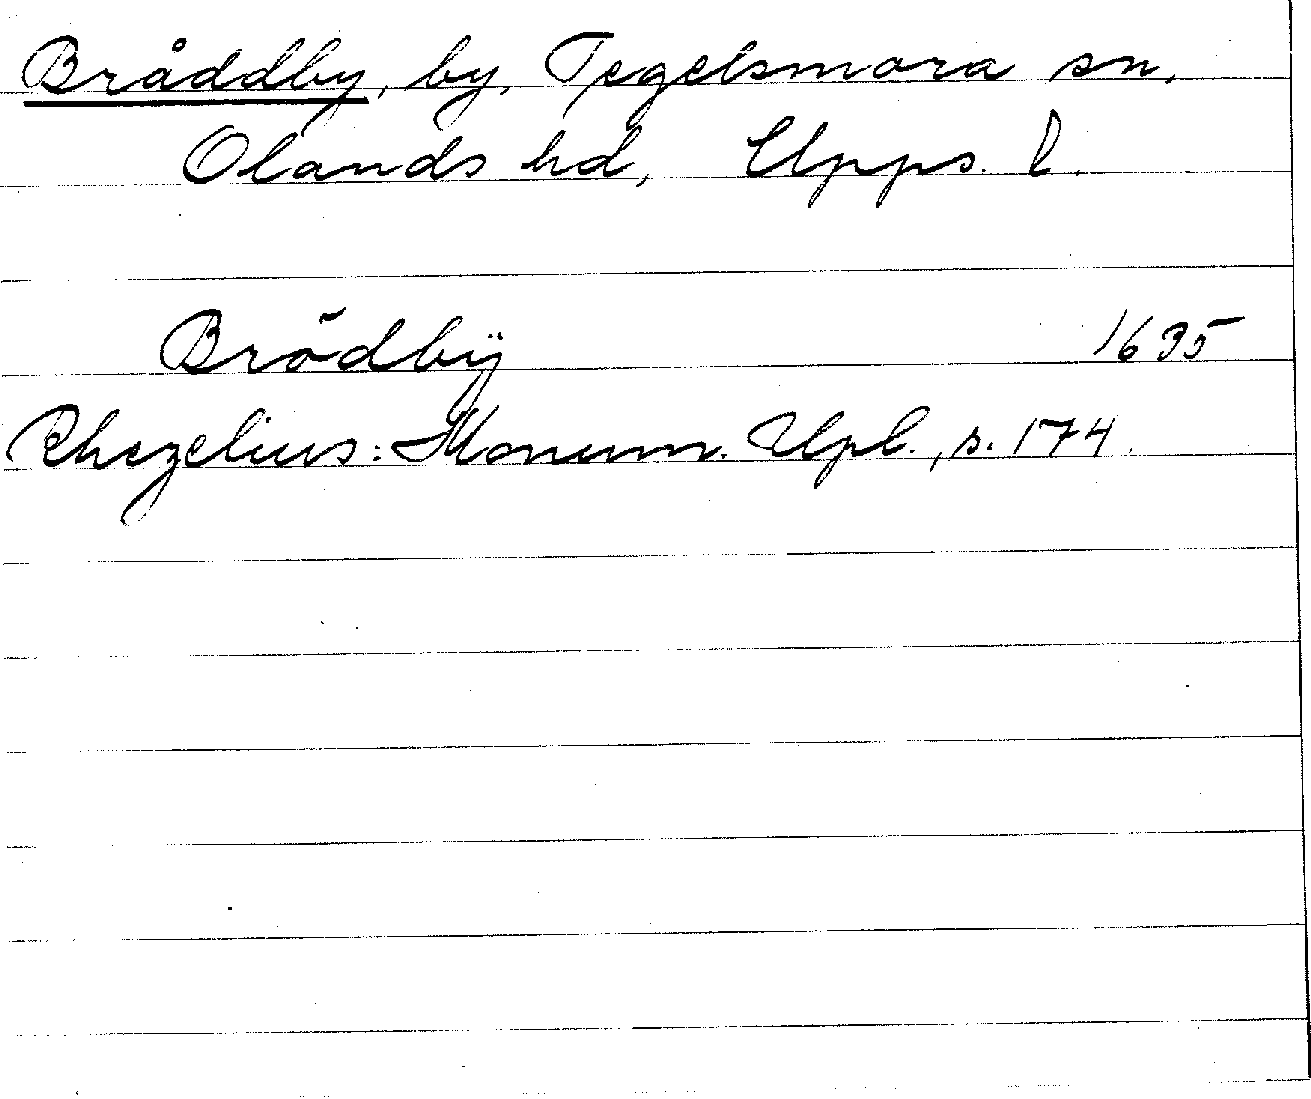 Bråddby, by, Tegelsmora sn,
Olands hd, Upps. l.
Brödbÿ 1635
Rhezelius: Monum. Upl., s. 174.